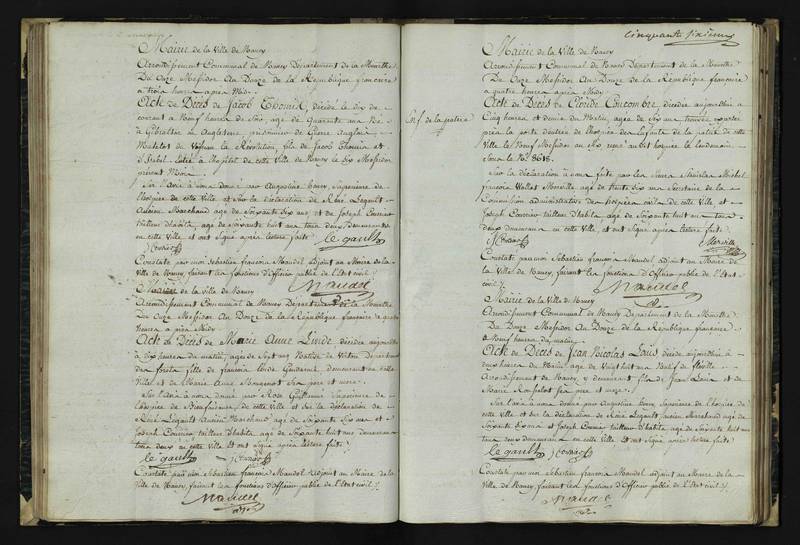 Mairie de la Ville de Nancy
Arrondissement Communal de Nancy Département de la Meurthe
Du Onze Messidor An Douze de la République française
à trois heures après Midi
Acte de Décès de Jacob décédé le dix du
courant à Neuf heures du Soir, âgé de Quarante ans
à Gibraltar en Angleterre, prisonnier de Guerre Anglais
Matelot du la Révolution, fils de Jacob Thomin et
d'Isabel entré à l'hôpital de cette Ville de Nancy le Six Messidor
présent Mois.
Sur l'avis à nous donné par Augustine Supérieure de
l'hospice de cette Ville et sur la déclaration de Rémi Legault
Ancien Marchand âgé de Soixante Six ans et de Joseph
tailleur d'habits, âgé de Soixante huit ans tous deux demeurant
en cette Ville, et ont Signé après lecture faite
le gault
Constaté par moi Sébastien françois Mandel adjoint au Maire de la
Ville de Nancy, faisant les fonctions d'Officier public de l'Etat civil
Mandel
Mairie de la Ville de Nancy
Arrondissement Communal de Nancy Département de la Meurthe
Du Onze Messidor An Douze de la République française à quatre
heures après Midi
Acte de Décès de Marie Anne décédée aujourd'hui
à Six heures du matin, âgée de Sept ans Native de Département
fille de françois Gendarme, demeurant en cette
Ville et de Marie Anne Ses père et mère.
Sur l'avis à nous donné par Rose Guillaume Supérieure de
l'hospice de de cette Ville et Sur la déclaration de
Rémi Legault Ancien Marchand âgé de Soixante Six ans et
Joseph tailleur d'habits, âgé de Soixante huit ans demeurant
tous deux en cette Ville, et ont Signé après lecture faite
le gault
Constaté par moi Sébastien françois Mandel adjoint au Maire de la
Ville de Nancy, faisant les fonctions d'Officier public de l'Etat civil
Mandel
Cinquante Sixième
Mairie de la Ville de Nancy
Arrondissement Communal de Nancy Département de la Meurthe
Du Onze Messidor An Douze de la République française
à quatre heures après Midi
Enf. de la patrie
Acte de Décès de Cloride Concombre décédée aujourd'hui à
Cinq heures et demie du Matin, âgée de Six ans trouvée exposée
près la porte d'entrée de l'hospice des Enfants de la patrie de cette
Ville le Neuf Messidor an Six le lendemain
Sous le No. 8618.
Sur la déclaration à nous faite par les Sieurs Stanislas Michel
françois Vallet Merville âgé de trente Six ans Secrétaire de la
Commission administrative des hospices civils de cette Ville et
Joseph tailleur d'habits, âgé de Soixante huit ans tous
deux demeurans en cette Ville, et ont Signé après lecture faite
Merville
Constaté par moi Sébastien françois Mandel adjoint au Maire de
la Ville de Nancy, faisant les fonctions d'Officier public de l'Etat
civil
Mandel
Mairie de la Ville de Nancy
Arrondissement Communal de Nancy Département de la Meurthe
Du Douze Messidor An Douze de la République française
à Neuf heures du matin
Acte de Décès de Jean Nicolas décédé aujourd'hui à
deux heures du Matin, âgé de Vingt huit ans Natif de fléville
Arrondissement de Nancy, y demeurant fils de Jean et de
Marie Ses père et mère.
Sur l'avis à nous donné par Augustine Supérieure de l'hospice de
cette Ville et Sur la déclaration de Rémi Legault ancien Marchand âgé de
Soixante Six ans et Joseph tailleur d'habits, âgé de Soixante huit ans
tous deux demeurans en cette Ville et ont Signé après lecture faite
le gault
Constaté par moi Sébastien françois Mandel adjoint au Maire de la
Ville de Nancy, faisant les fonctions d'Officier public de l'Etat civil
Mandel